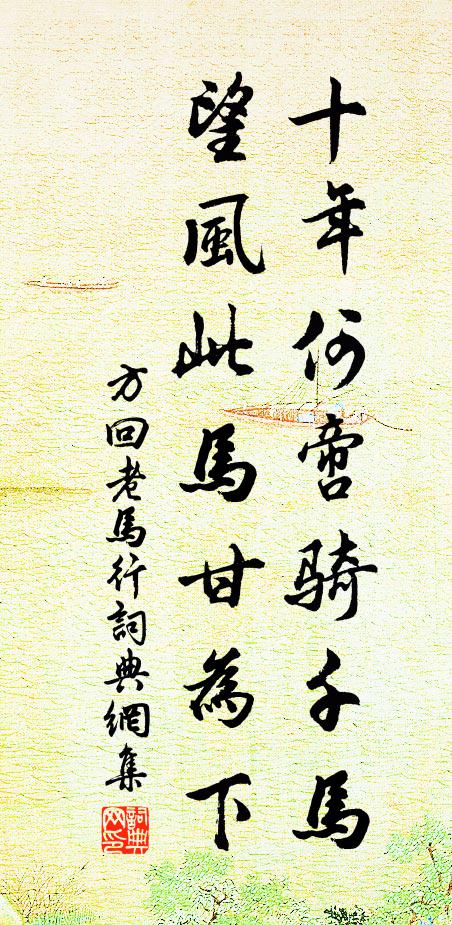 十年何啻騎千馬
望風此馬甘為下
方回老馬行詞典網集
詞典網印